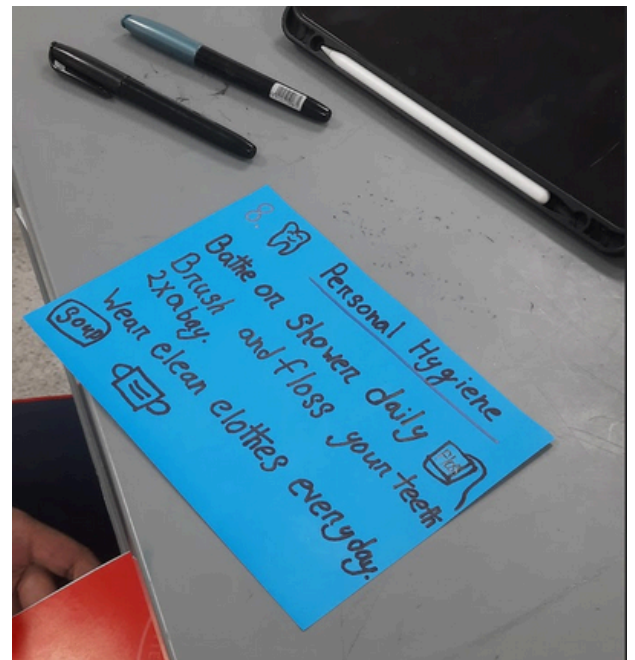 8.
Personal Hygiene
Bathe or Shower daily
Brush and floss your teeth
2xabay.
Wear clean clothes everyday.
Soup
Floss